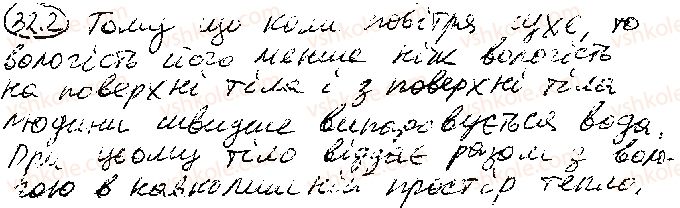 32.2 Тому що коли повітря сухе, то
вологість його менше ніж вологість
на поверхні тіла і з поверхні тіла
людини швидше випаровується вода.
При цьому тіло віддає разом з воло-
гою в навколишній простір тепло.